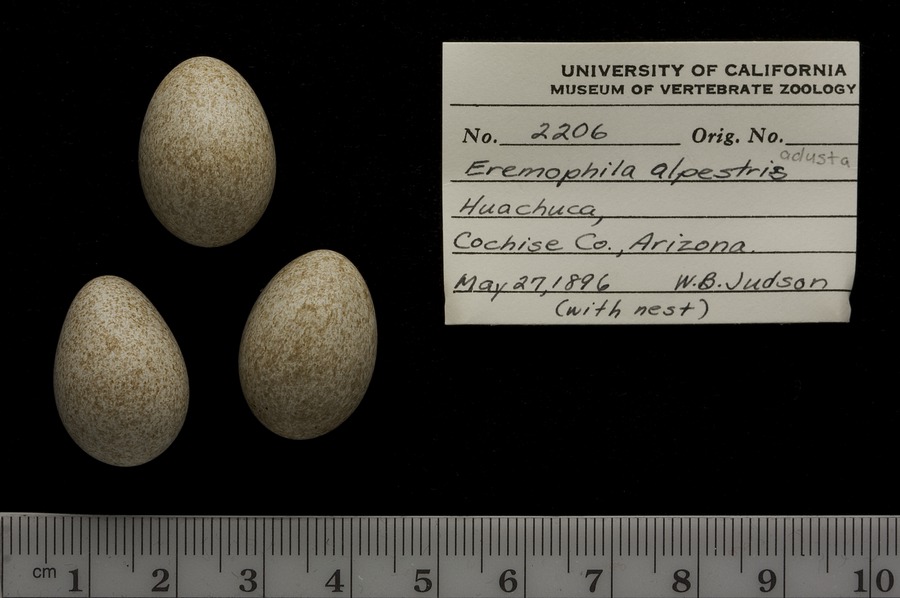 UNIVERSITY OF CALIFORNIA
MUSEUM OF VERTEBRATE ZOOLOGY
No. 2206 Orig. No.
Eremophila alpestris adusta
Huachuca,
Cochise Co., Arizona.
May 27, 1896 W.B. Judson
(with nest)
cm 1 2 3 4 5 6 7 8 9 10